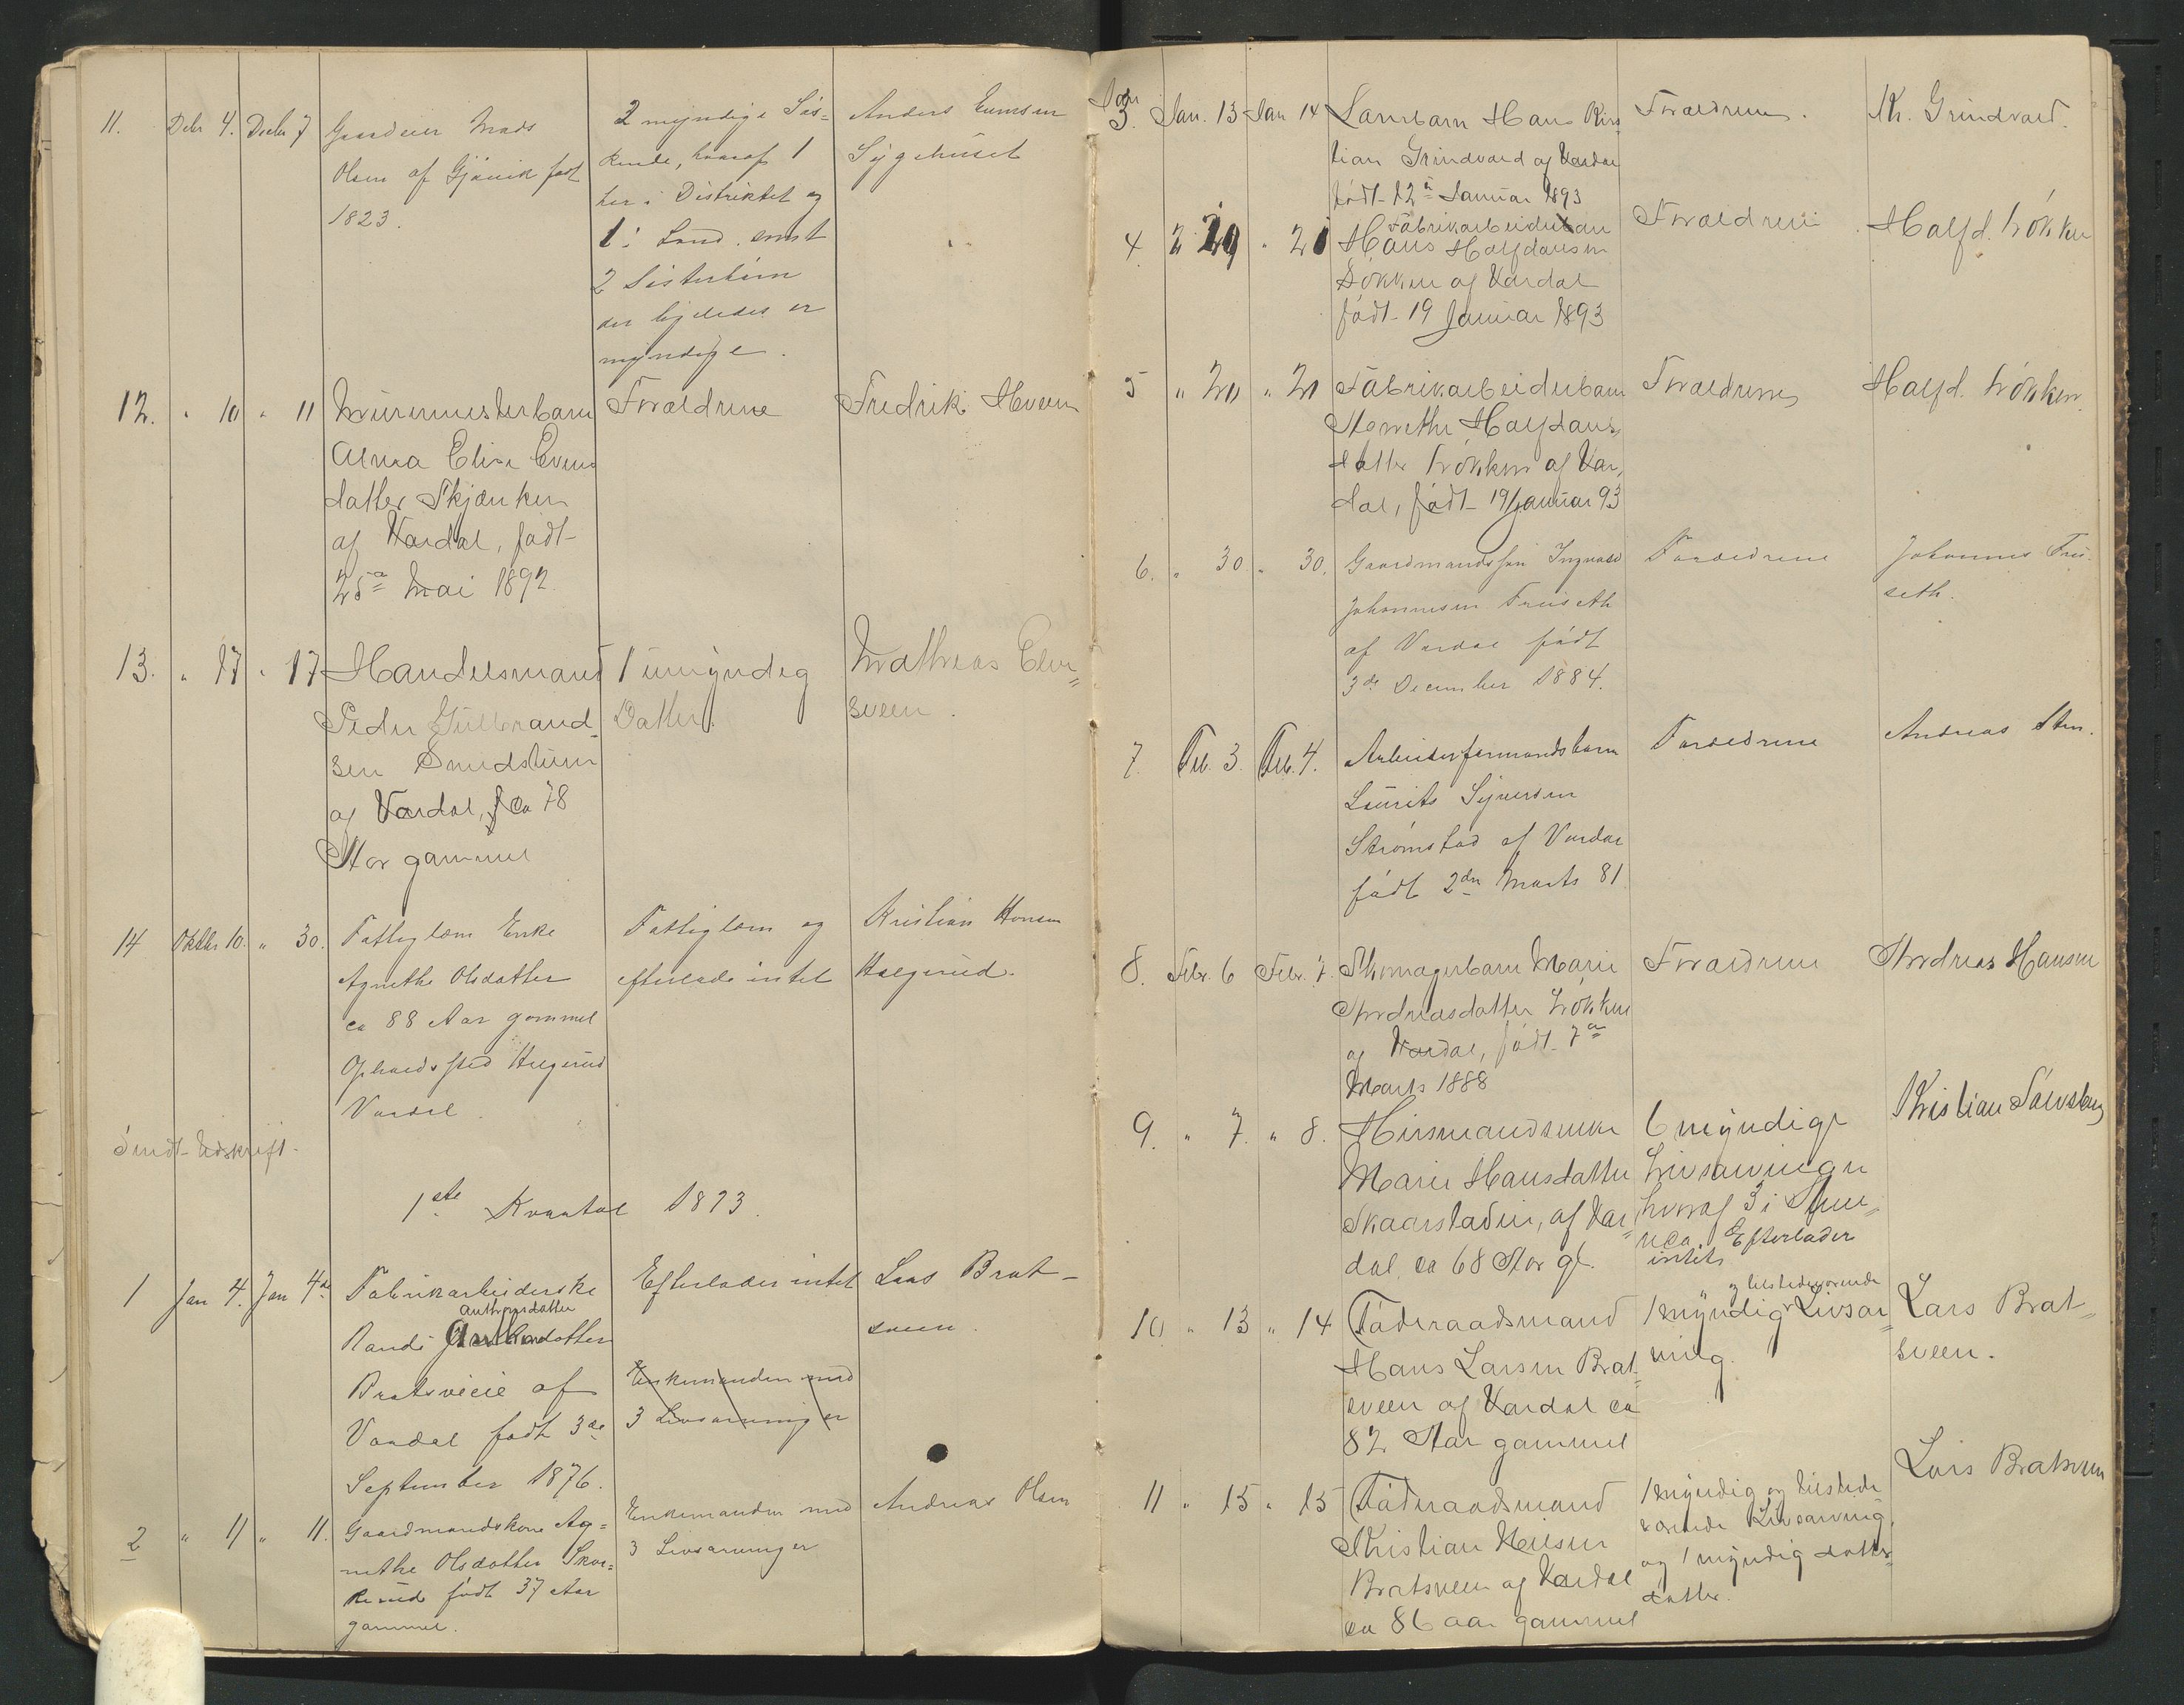 11. Debr 4. Decbr 7 Gaardeier Mads
Olsen af Gjøvik født
1823.
2 myndige Søs-
kende, hvoraf 1
her i Distriktet og
1 i Land samt
2 Søsterbørn
der ligeledes er
myndige.
Anders
Sygehuset
12. " 10 " 11 Murmesterbarn
Alma Elise Evens
datter Skjænken
af Vardal, født
25de Mai 1892.
Forældrene
Fredrik Hveem
13. " 17 " 17 Handelsmand
Peder Gulbrand-
sen
af Vardal, ca 78
Aar gammel
1 umyndig
Datter.
Mathias
sveen.
14 Oktbr 10. " 30. Fattiglem Enke
Agnethe Olsdatter
ca 88 Aar gammel
Opholdssted Helgerud
Vardal.
Fattiglem og
efterlade intet
Kristian Hansen
Helgerud.
Sendt Udskrift.
1ste Kvartal 1893.
1 Jan 4. Jan 4de Fabrikarbeiderske
Anthonsdatter
Randi
Bratsveie af
Vardal født 3de
September 1876.
Efterlader intet
Enkemanden med
3 Livsarvinger
Lars Brat-
sveen
2 " 11 " 11. Gaardmandskone Ag-
nethe Olsdatter Skon-
kerud født 37 Aar
gammel.
Enkemanden med
3 Livsarvinger
Andreas Olsen
Jan
3. Jan. 13 Jan 14 Hans Kris
tian Grindvold af Vardal
født 12te Januar 1893
Forældrene.
Kr. Grindvold.
4. 20 " 21 Fabrikarbeiderbarn
Hans Halfdansen
Løkken af Vardal
født 19 Januar 1893
Forældrene
Halfd. Løkken
5 " 20 " 21 Fabrikarbeiderbarn
Halfdans
datter Løkken af Var-
dal, født 19 Januar 93
Forældrene
Halfd. Løkken.
6. " 30 " 30. Gaardmandssøn Ingvald
Johannesen Fruseth
af Vardal født
3de December 1884.
Forældrene
Johannes Fru-
seth.
7. Feb. 3. Feb. 4. Arbeidsformandsbarn
Laurits Syversen
Strømstad af Vardal
født 2den Marts 81.
Forældrene
Andreas Sten.
8. Febr. 6 Febr. 7. Skomagerbarn Marie
Andreasdatter Løkken
af Vardal, født 7de
Marts 1888
Forældrene
Andreas Hansen
9. " 7. " 8. Husmandsenke
Marie Hansdatter
Skaarsladien, af Var-
dal ca 68 Aar gl.
6 myndige
Livsarvinger
hvoraf 3 i Ame-
rica. Efterlader
intet
Kristian
10 " 13 " 14 Føderaadsmand
Hans Larsen Brat-
sveen af Vardal ca
82 Aar gammel
og tilstedeværende
1 myndig Livsar-
ving.
Lars Brat-
sveen.
11 " 15 " 15 Føderaadsmand
Kristian Nilsen
Bratsveen af Vardal
ca 86 aar gammel
1 myndig og tilstede
værende Livsarving,
og 1 myndig datter
datter.
Lars Bratsveen